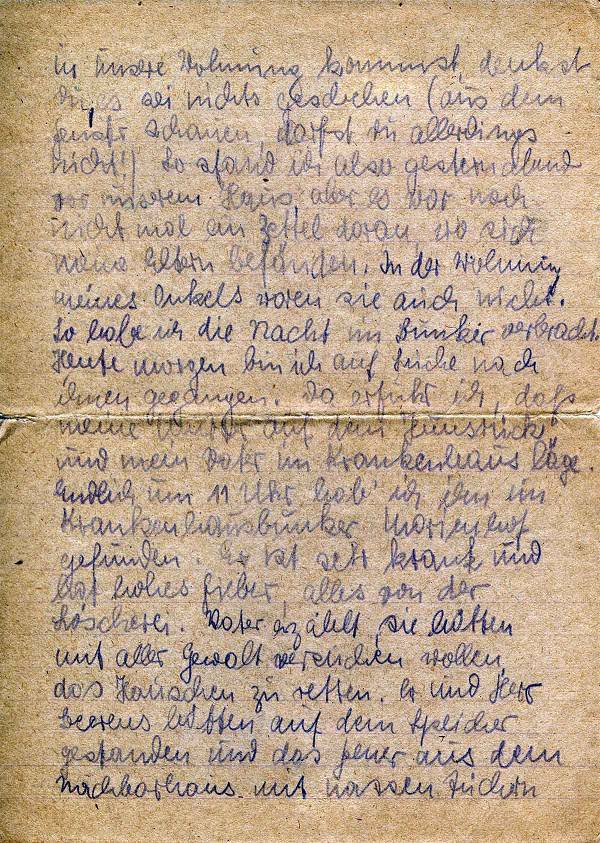 in unsere Wohnung kommst, denkst
Du, es sei nichts geschehen (aus dem
Fenster schauen, darfst Du allerdings
nicht!) So stand ich also gestern abend
vor unserem Haus, aber es war noch
nicht mal ein Zettel daran, wo sich
meine Eltern befänden. In der Wohnung
meines Onkels waren sie auch nicht.
So habe ich die Nacht im Bunker verbracht.
Heute morgen bin ich auf Suche nach
ihnen gegangen. Da erfuhr ich, daß
meine auf dem Hunsrück
und mein Vater im Krankenhaus läge.
Endlich um 11 Uhr hab' ich ihn im
Krankenhausbunker Marienhof
gefunden. Er ist sehr krank und
hat hohes Fieber, alles von der
Löscherei. Vater erzählt, sie hätten
mit aller Gewalt versuchen wollen,
das Häuschen zu retten. Er und Herr
Beerens hätten auf dem Speicher
gestanden und das Feuer aus dem
Nachbarhaus mit nassen Tüchern